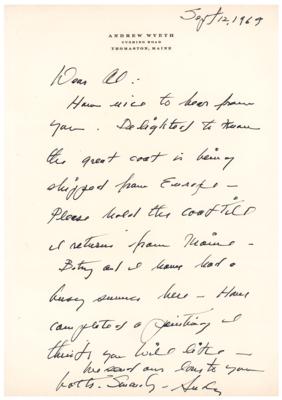 Sept 12, 1969
ANDREW WYETH
CUSHING ROAD
THOMASTON, MAINE
Dear Al:
How nice to hear from
you. Delighted to know
the great coat is being
shipped from Europe —
Please hold the coat till
I return from Maine —
Betsy and I have had a
busy summer here — Have
completed a painting I
think you will like —
we send our love to you
both. Sincerely — Andy